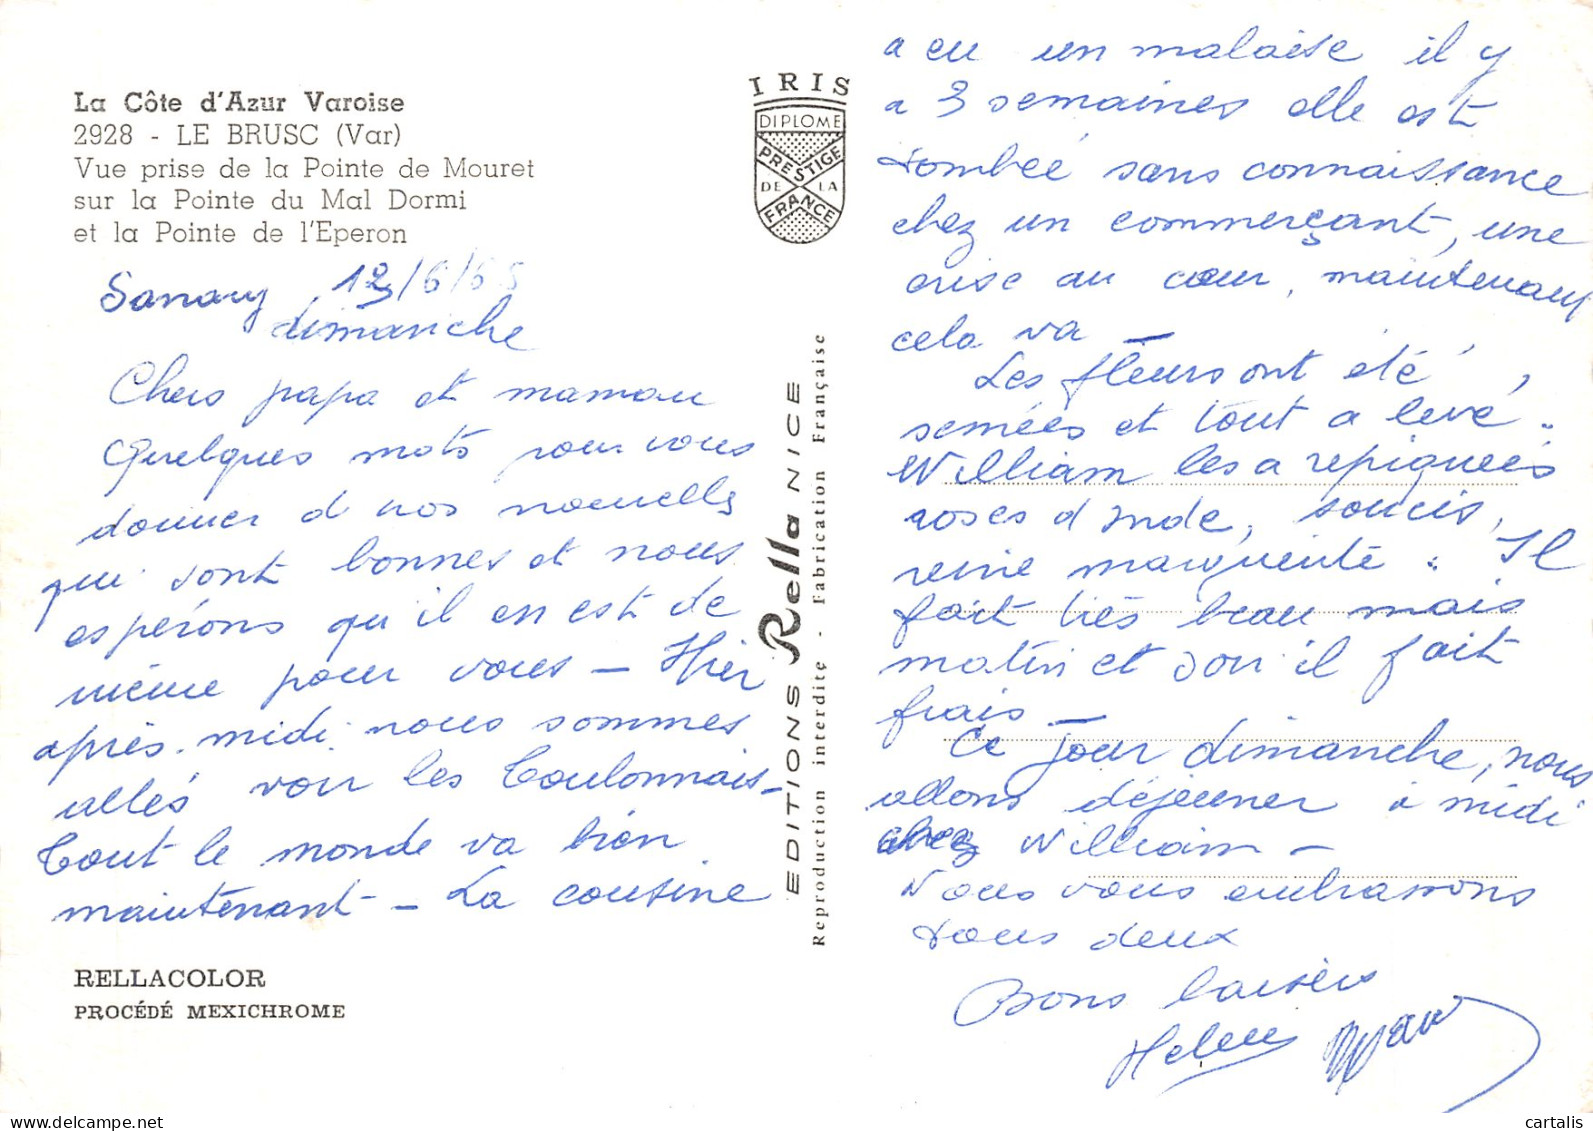 La Côte d'Azur Varoise
2928 - LE BRUSC (Var)
Vue prise de la Pointe de Mouret
sur la Pointe du Mal Dormi
et la Pointe de l'Eperon
Sanary 12/6/65
dimanche
Chers papa et maman
Quelques mots pour vous
donner d nos nouvelles
qui sont bonnes et nous
espérons qu'il en est de
même pour vous – Hier
après. midi nous sommes
allés voir les Toulonnais –
Tout le monde va bien
maintenant – La cousine
RELLACOLOR
PROCÉDÉ MEXICHROME
IRIS
DIPLOME
PRESTIGE
DE LA
FRANCE
EDITIONS Rella NICE
Reproduction interdite - Fabrication Française
a eu un malaise il y
a 3 semaines elle est
tombée sans connaissance
chez un commerçant, une
crise au cœur, maintenant
cela va
Les fleurs ont été
semées et tout a levé.
William les a repiquées
roses d Inde, soucis,
reine marguerite. Il
fait très beau mais
matin et soir il fait
frais –
Ce jour dimanche, nous
allons déjeuner à midi
chez William –
Nous vous embrassons
tous deux
Bons baisers
Helene
delcampe.net
cartalis